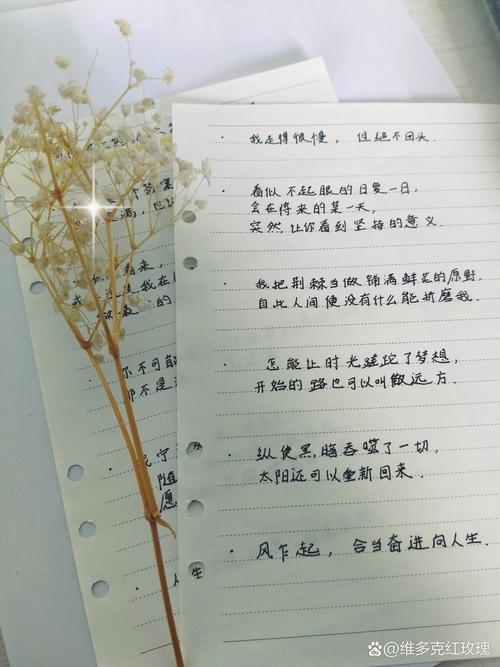 · 我走得很慢，但绝不回头.
· 看似不起眼的日复一日，
会在将来的某一天，
突然，让你看到坚持的意义.
· 我把荆棘当做铺满鲜花的原野，
自此人间便没有什么能折磨我.
怎能让时光蹉跎了梦想，
开始的路也可以叫做远方.
· 纵使黑暗吞噬了一切，
太阳还可以重新回来.
· 风乍起，合当奋进向人生.
你不可能
那不是
随
愿
百家号/维多克红玫瑰